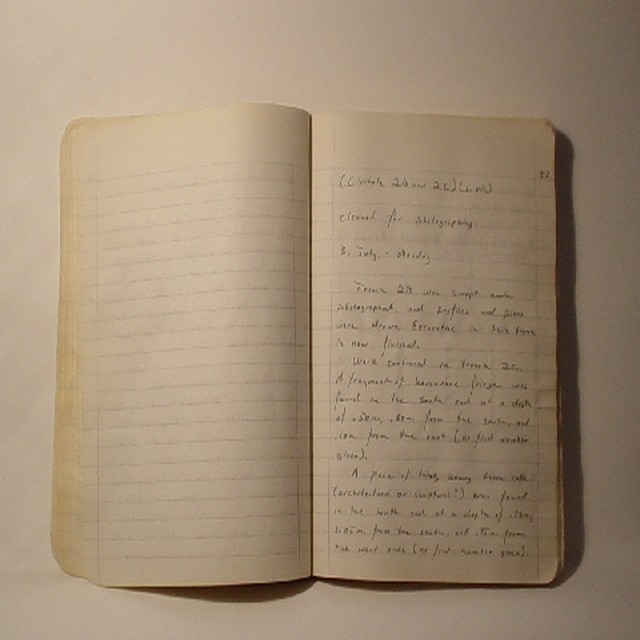 82
cleaned for photographing.
3. July. - Monday
Trench 2B was swept and
photographed, and profiles and plans
were drawn. Excavation in this trench
is now finished.
Work continued in Trench 2C.
A fragment of horserace frieze was
found in the south end at a depth
of m, m from the south, and
m from the east (no find number
given).
A piece of totally heavy terra cotta
(architecture or sculpture?) was found
in the north end at a depth of m,
1.05m from the south, and m from
the west side (no find number given).